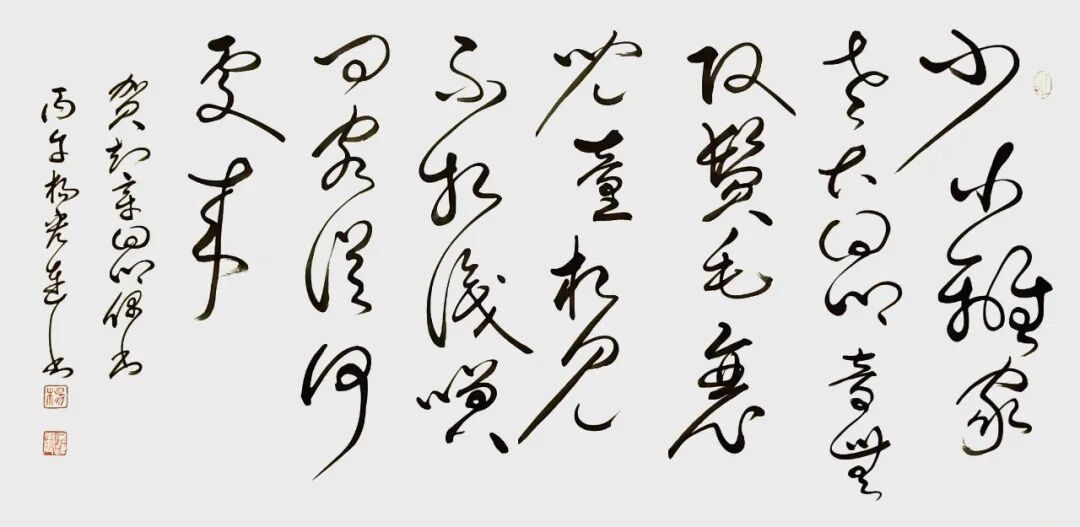 少小離家
老大回鄉音無
改鬢毛衰
兒童相見
不相識笑
問客從何
處來
賀知章回鄉偶書
丙午楊書